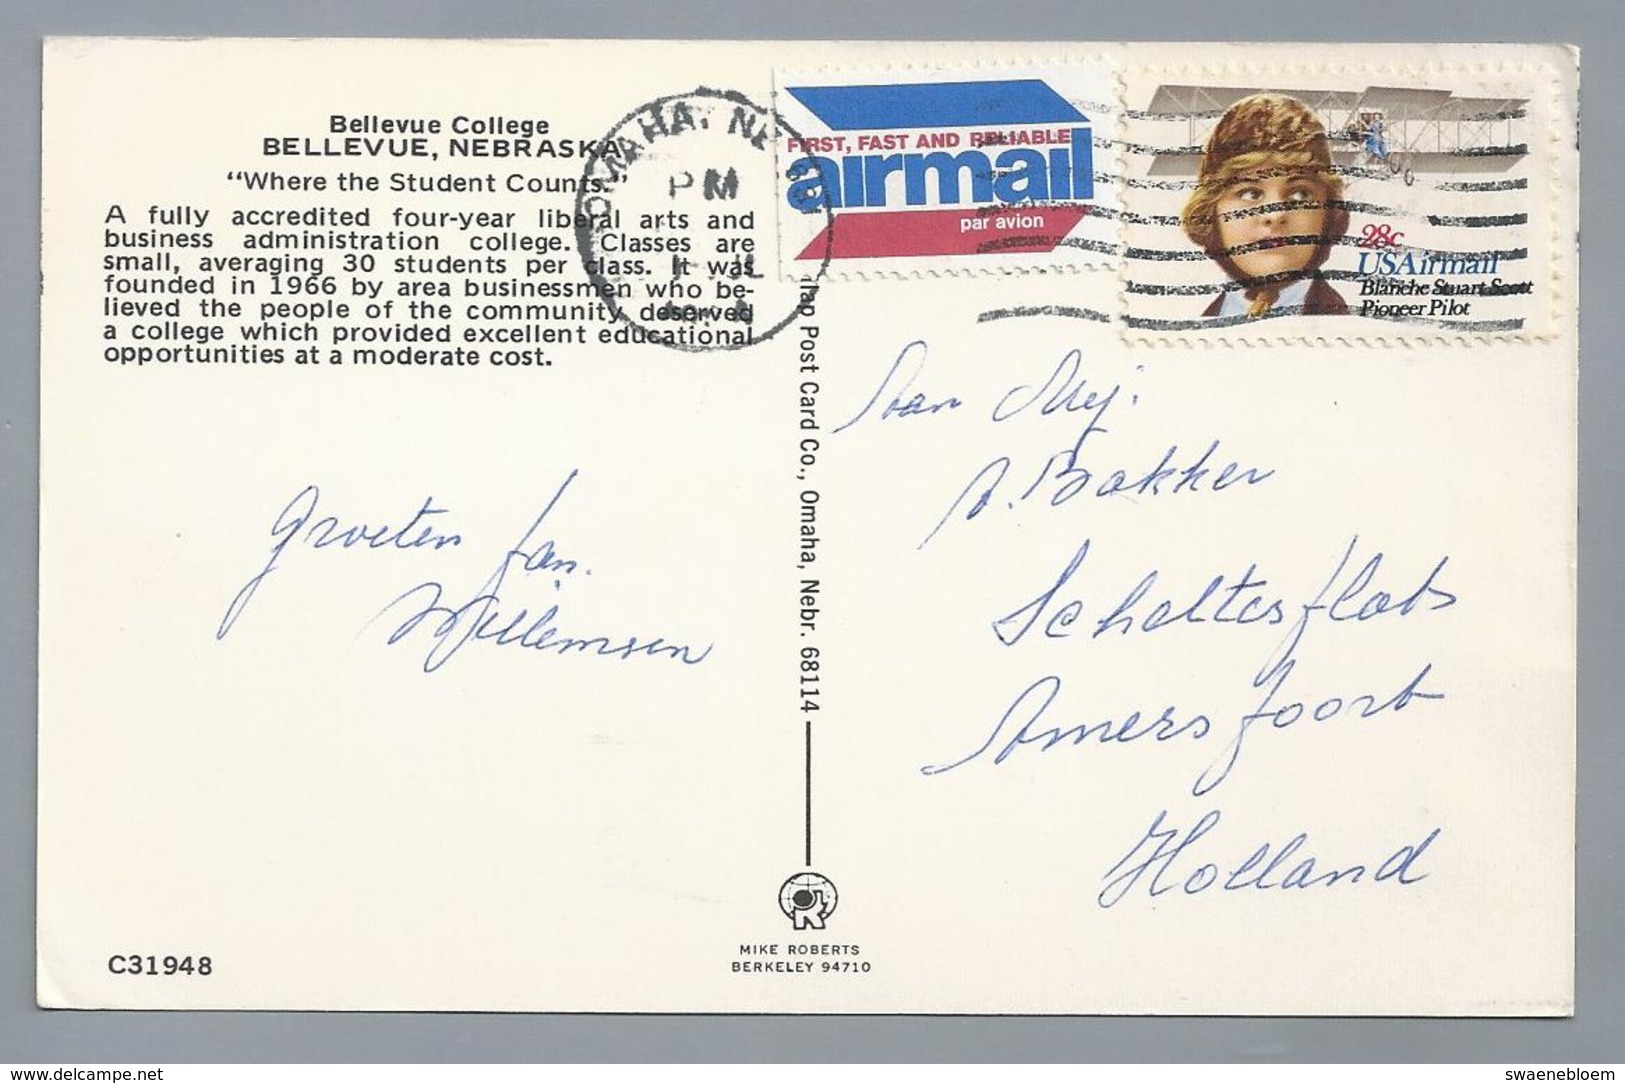 Bellevue College
BELLEVUE, NEBRASKA
"Where the Student Counts."
A fully accredited four-year liberal arts and
business administration college. Classes are
small, averaging 30 students per class. It was
founded in 1966 by area businessmen who be-
lieved the people of the community deserved
a college which provided excellent educational
opportunities at a moderate cost.
OMAHA, NE 681
PM
FIRST, FAST AND RELIABLE
airmail
par avion
28c
USAirmail
Blanche Stuart Scott
Pioneer Pilot
Post Card Co., Omaha, Nebr. 68114
Groeten fam.
Willemsen
Aan Mej.
A. Bakker
Scheltes flats
Amersfoort
Holland
C31948
MIKE ROBERTS
BERKELEY 94710
www.delcampe.net
swaenebloem